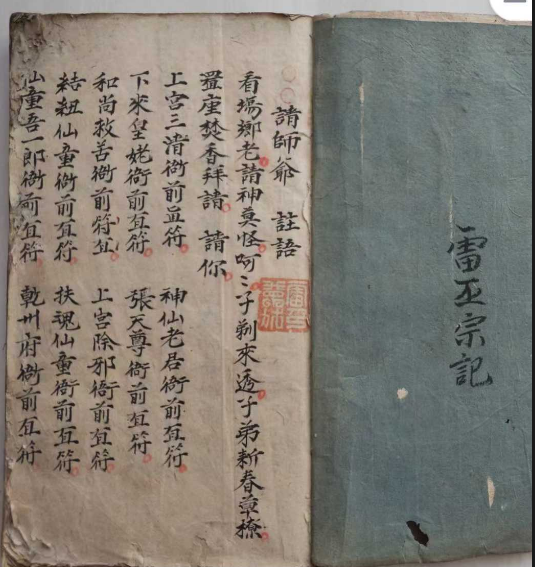 雷亙宗記
請師爺 註語
看場鄉老請神莫怪呵〻子剃來透子弟新春草
疊座焚香拜請 請你
上宮三清衙前亙符 神仙老君衙前亙符
下來皇姥衙前亙符 張天尊衙前亙符
和尚救苦衙前符亙 上宮除邪衙前亙符
結紐仙童衙前亙符 扶魂仙童衙前亙符
仙童吾一郎衙前亙符 乾州府衙前亙符